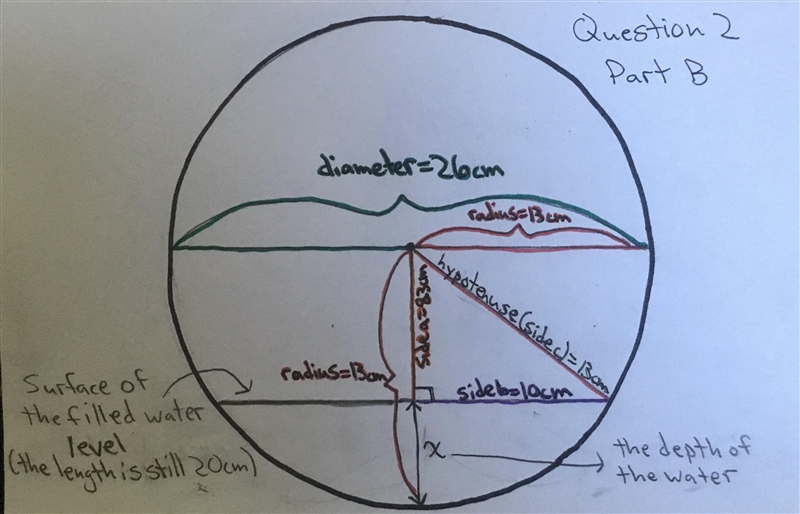 Question 2
Part B
diameter=26cm
radius=13cm
side a=8.3cm
hypotenuse(side c)=13cm
radius=13cm
side b=10cm
Surface of
the filled water
level
(the length is still 20cm)
x
the depth of
the water